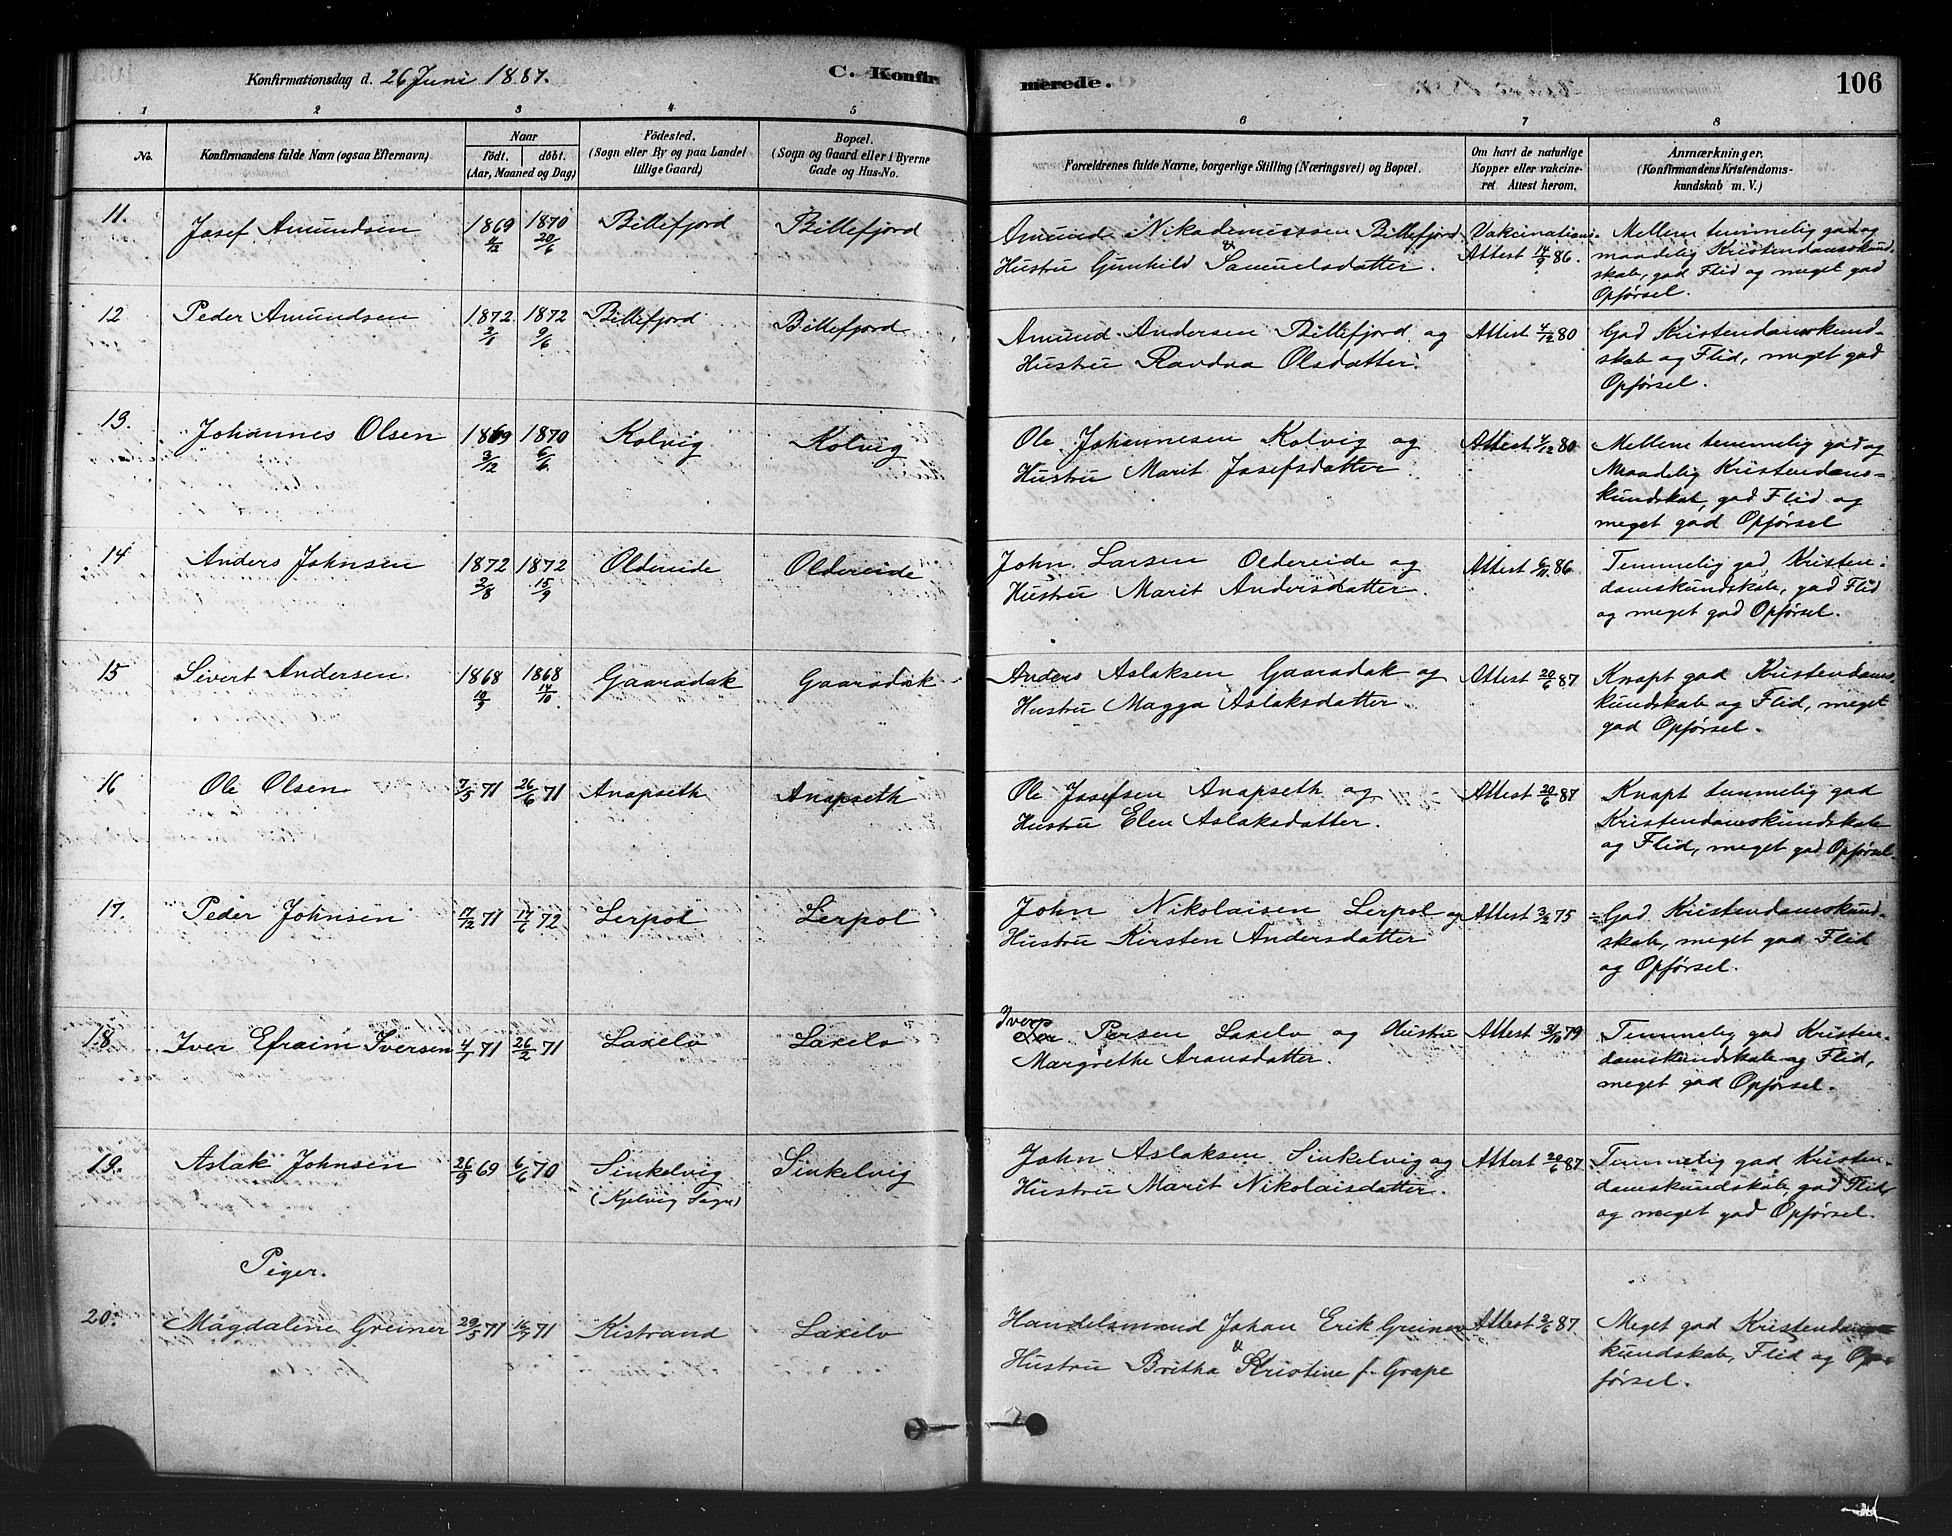 Konfirmationsdag d. 26 Juni 1887. C. Konfirmerede. 106
1 2 3 4 5 6 7 8
No. Konfirmandens fulde Navn (ogsaa Efternavn) Naar født. døbt. (Aar, Maaned og Dag) Födested. (Sogn eller By og paa Landet tillige Gaard) Bopæl. (Sogn og Gaard eller i Byerne Gade og Hus-No. Forældrenes fulde Navne, borgerlige Stilling (Næringsvei) og Bopæl. Om havt de naturlige Kopper eller vakcineret. Attest herom. Anmærkninger. (Konfirmandens Kristendomskundskab m. V.)
11. Josef Amundsen 1869 4/12 1870 20/6 Billefjord Billefjord Amund Nikodemussen Billefjord & Vakcinations- Mellem temmelig god og
Hustru Gunhild Samuelsdatter. Attest 14/9 86. maadelig Kristendomskund-
skab, god Flid og meget god
Opførsel.
12 Peder Amundsen 1872 2/1 1872 9/6 Billefjord Billefjord Amund Andersen Billefjord og Attest 4/12 80 God Kristendomskund-
Hustru Ravdna Olsdatter. skab og Flid, meget god
Opførsel.
13. Johannes Olsen 1869 3/12 1870 6/6 Kolvig Kolvig Ole Johannesen Kolvig og Attest 4/12 80 Mellem temmelig god og
Hustru Marit Josefsdatter Maadelig Kristendoms-
kundskab, god Flid og
meget god Opførsel
14 Anders Johnsen 1872 2/8 1872 15/9 Oldereide Oldereide John Larsen Oldereide og Attest 6/11 86 Temmelig god Kristen-
Hustru Marit Andersdatter. domskundskab, god Flid
og meget god Opførsel.
15 Sivert Andersen 1868 10/5 1868 14/10 Gaaradak Gaaradak Anders Aslaksen Gaaradak og Attest 20/6 87 Knapt god Kristendoms-
Hustru Magga Aslaksdatter. kundskab og Flid, meget
god Opførsel.
16 Ole Olsen 7/5 71 26/6 71 Anopseth Anopseth Ole Josefsen Anopseth og Attest 20/6 87 Knapt temmelig god
Hustru Elen Aslaksdatter. Kristendomskundskab
og Flid, meget god Opførsel.
17. Peder Johnsen 17/12 71 17/6 72 Lerpol Lerpol John Nikolaisen Lerpol og Attest 3/2 75 God Kristendomskund-
Hustru Kirsten Andersdatter skab, meget god Flid
og Opførsel.
18. Iver Efraim Iversen 4/1 71 26/2 71 Laxelv Laxelv Iver Persen Laxelv og Hustru Attest 3/10 79 Temmelig god Kristen-
Margrethe Aronsdatter. domskundskab og Flid,
meget god Opførsel.
19. Aslak Johnsen 26/9 69 6/6 70 Sinkelvig Sinkelvig John Aslaksen Sinkelvig og Attest 20/6 87 Temmelig god Kristen-
(Kjelvig Sogn) Hustru Marit Nikolaisdatter. domskundskab, god Flid
og meget god Opførsel.
Piger.
20. Magdalene Greiner 29/5 71 16/7 71 Kistrand Laxelv Handelsmand Johan Erik Greiner & Attest 2/6 87 Meget god Kristendoms-
Hustru Britha Kristine f. Grape kundskab, Flid og Op-
førsel.